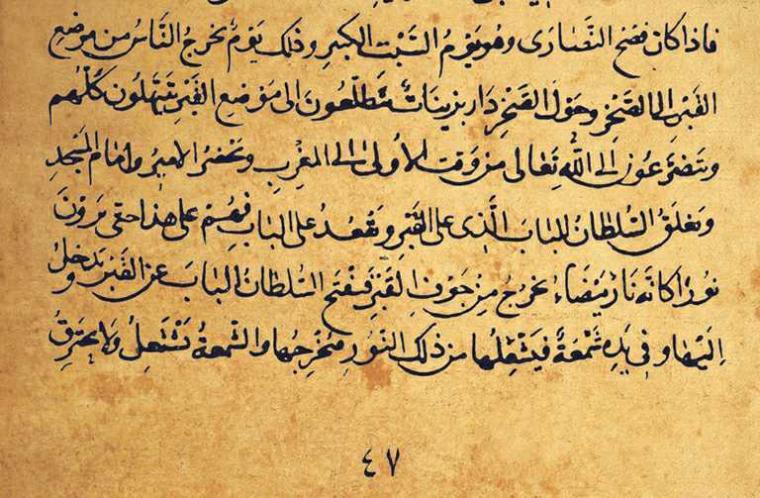 فاذا كان فصح النصارى وهو يوم السبت الكبير وذلك يوم يخرج الناس من موضع
القبر الى الصخر وحول الصخر دار بزينات يتطلعون الى موضع القبر يتهلون كلهم
ويتضرعون الى الله تعالى من وقت الأولى الى المغرب ويحضر الامير وامام المسجد
ويغلق السلطان الباب الذى على القبر ويقعد على الباب فهم على هذا حتى يرون
نورا كانه نار بيضاء يخرج من جوف القبر فيفتح السلطان الباب عن القبر ويدخل
اليها وفى يده شمعة فيشعلها من ذلك النور مخرجها والشمعة تشتعل ولا يحترق
٤٧